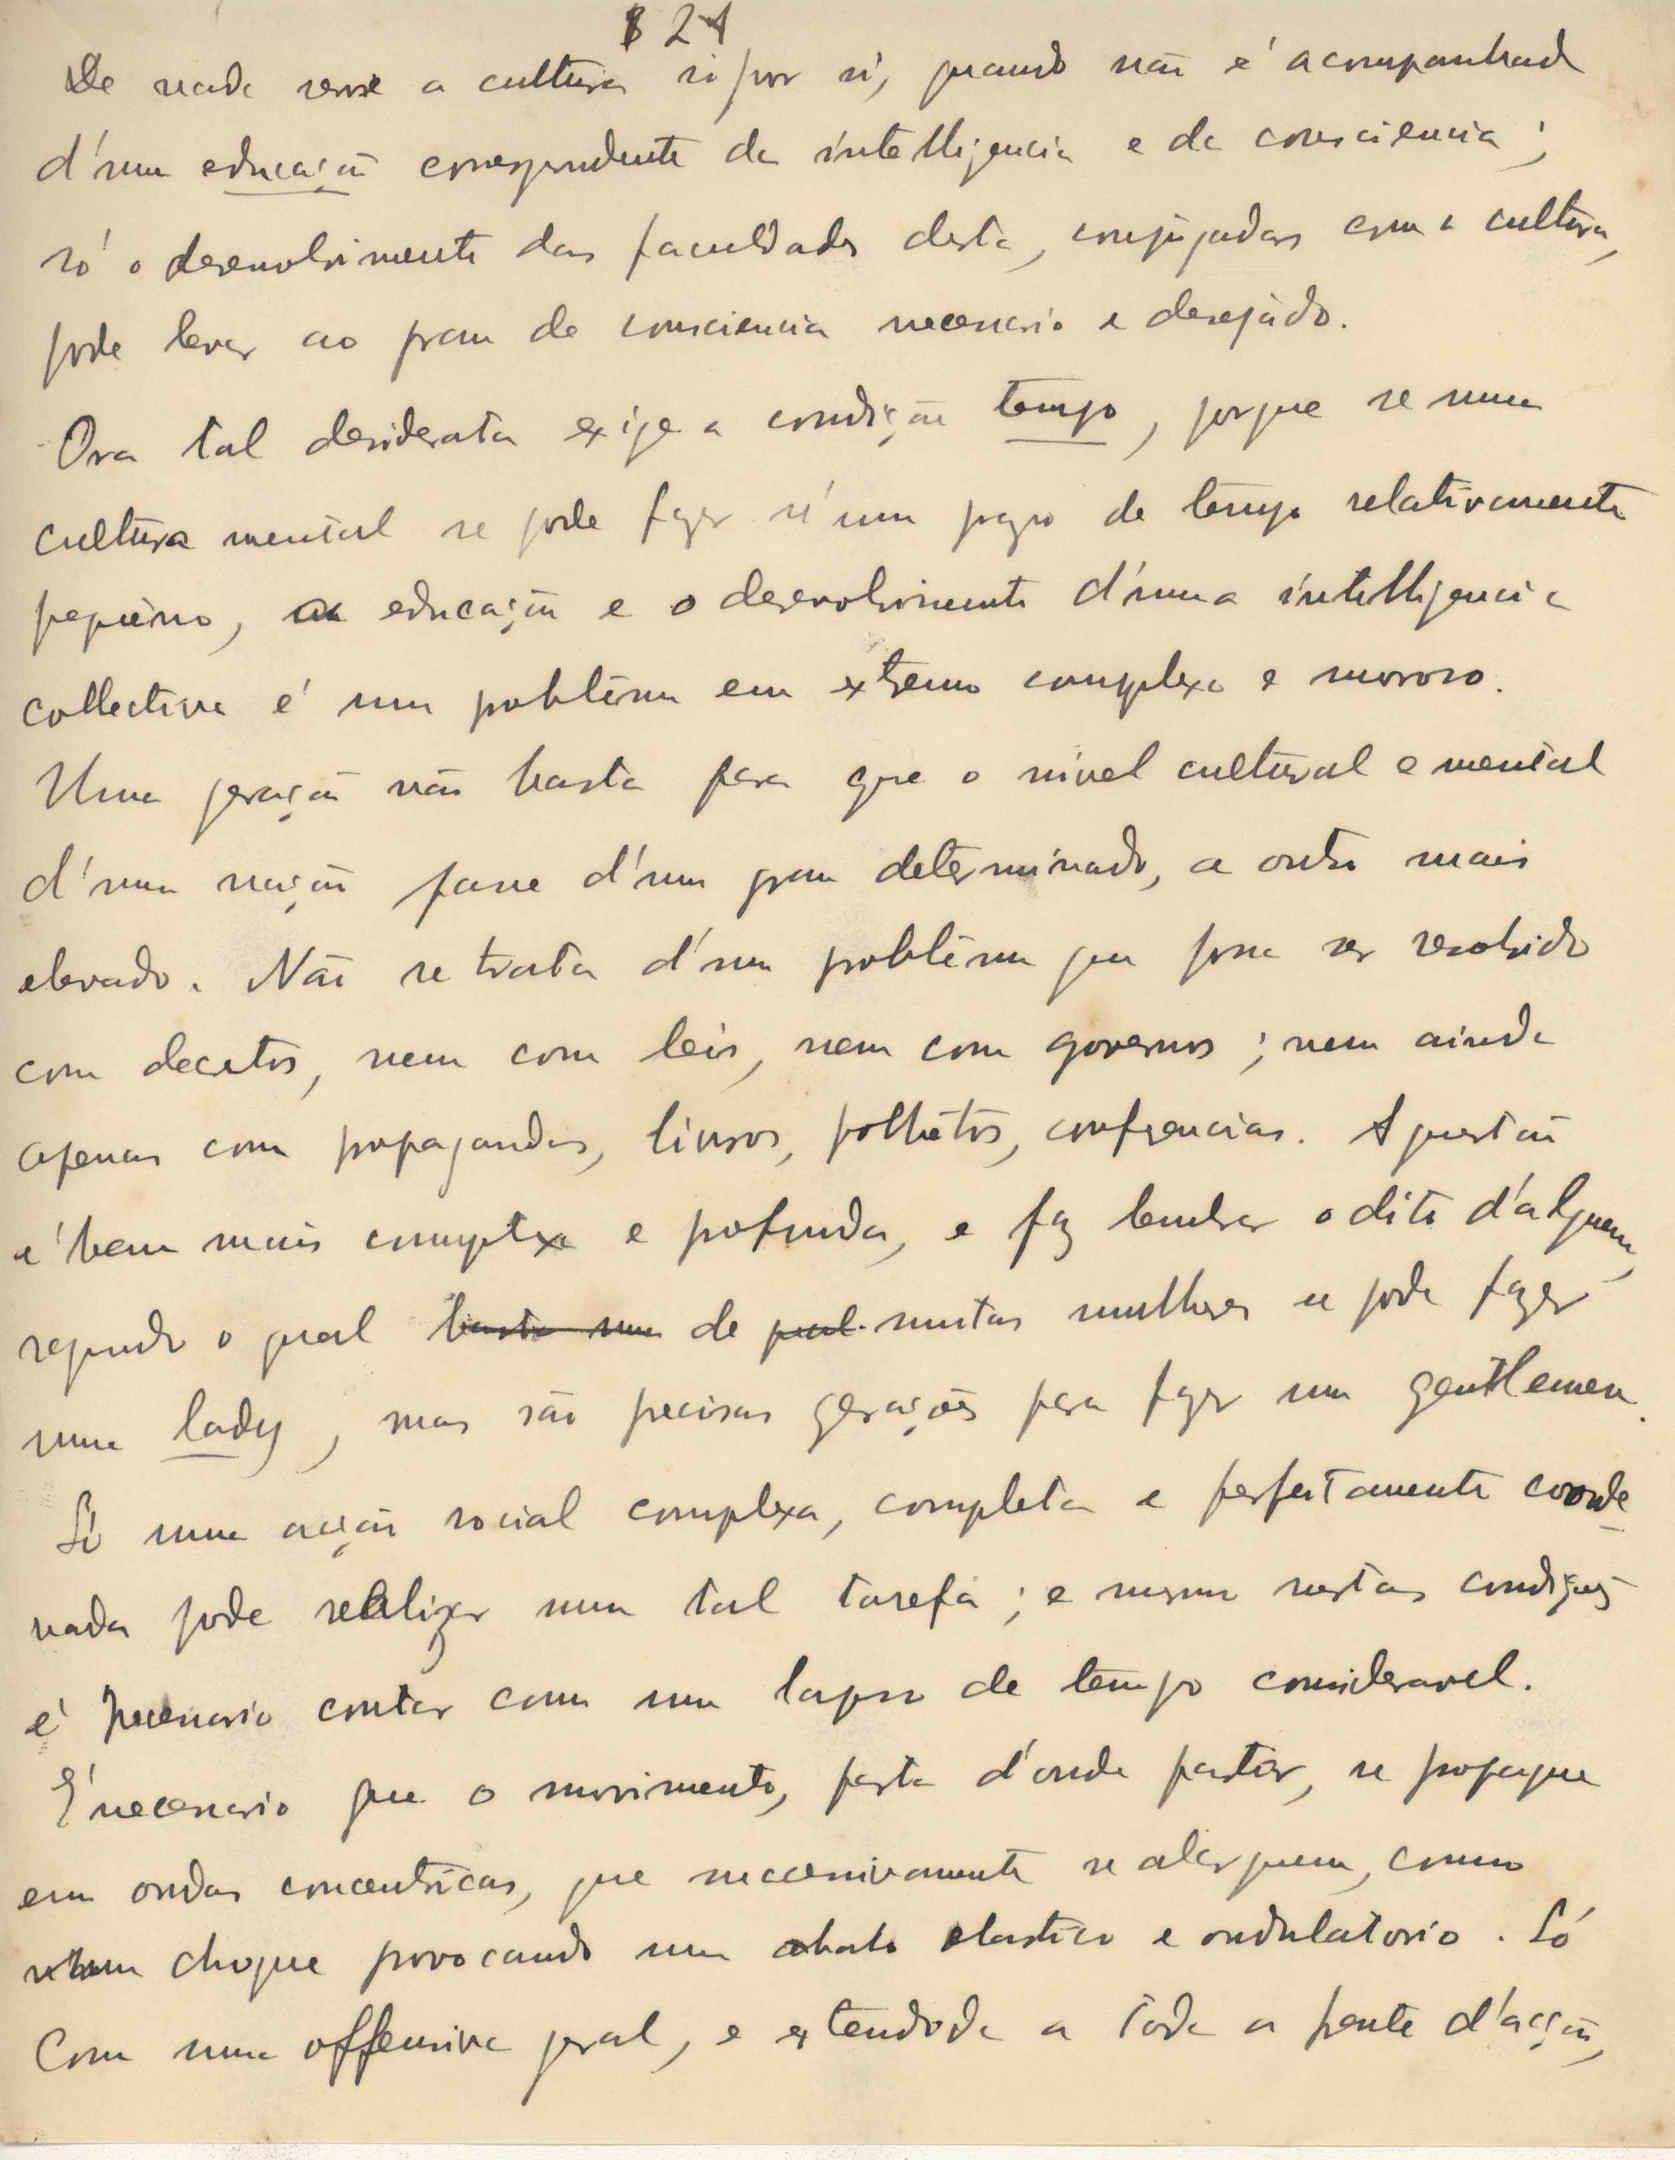 24
De nada serve a cultura si por si, quando não é acompanhada
d'uma educação correspondente da intelligencia e da consciencia;
só o desenvolvimento das faculdades desta, conjugadas com a cultura,
pode levar ao grau de consciencia necessario e desejado.
Ora tal desiderata exige a condição tempo, porque se uma
cultura mental se pode fazer n'um prazo de tempo relativamente
pequeno, a educação e o desenvolvimento d'uma intelligencia
collectiva é um problema em extremo complexo e moroso.
Uma geração não basta para que o nivel cultural e mental
d'uma nação passe d'um grau determinado, a outro mais
elevado. Não se trata d'um problema que possa ser resolvido
com decretos, nem com leis, nem com governos; nem ainda
apenas com propagandas, livros, folhetos, conferencias. A questão
é bem mais complexa e profunda, e faz lembrar o dito d'alguem,
segundo o qual basta uma de qual muitas mulheres se pode fazer
uma lady, mas são precisas gerações para fazer um gentlemen.
Só uma acção social complexa, completa e perfeitamente coorde
nada pode realizar uma tal tarefa; e mesmo nestas condições
é necessario contar com um lapso de tempo consideravel.
É necessario que o movimento, parta d'onde partir, se propague
em ondas concentricas, que successivamente se alarguem, como
um choque provocando um abalo elastico e ondulatorio. Só
Com uma offensiva geral, e extendida a toda a frente d'acção,